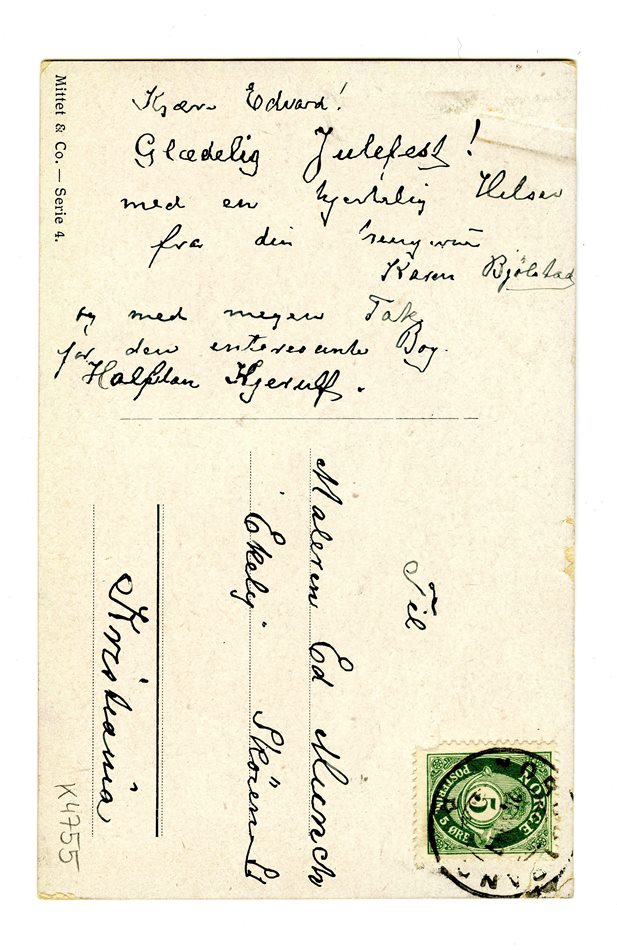 Kjære Edvard!
Glædelig Julefest!
med en hjertelig Hilsen
fra din
Karen Bjølstad
og med megen Tak
for den interesante Bog.
Halfdan Kjerulf.
Til
Maleren Ed Munch
"Ekely" Skøien St
Kristiania
Mittet & Co. — Serie 4.
NORGE
POSTFRIM
5
5 ØRE
K4755